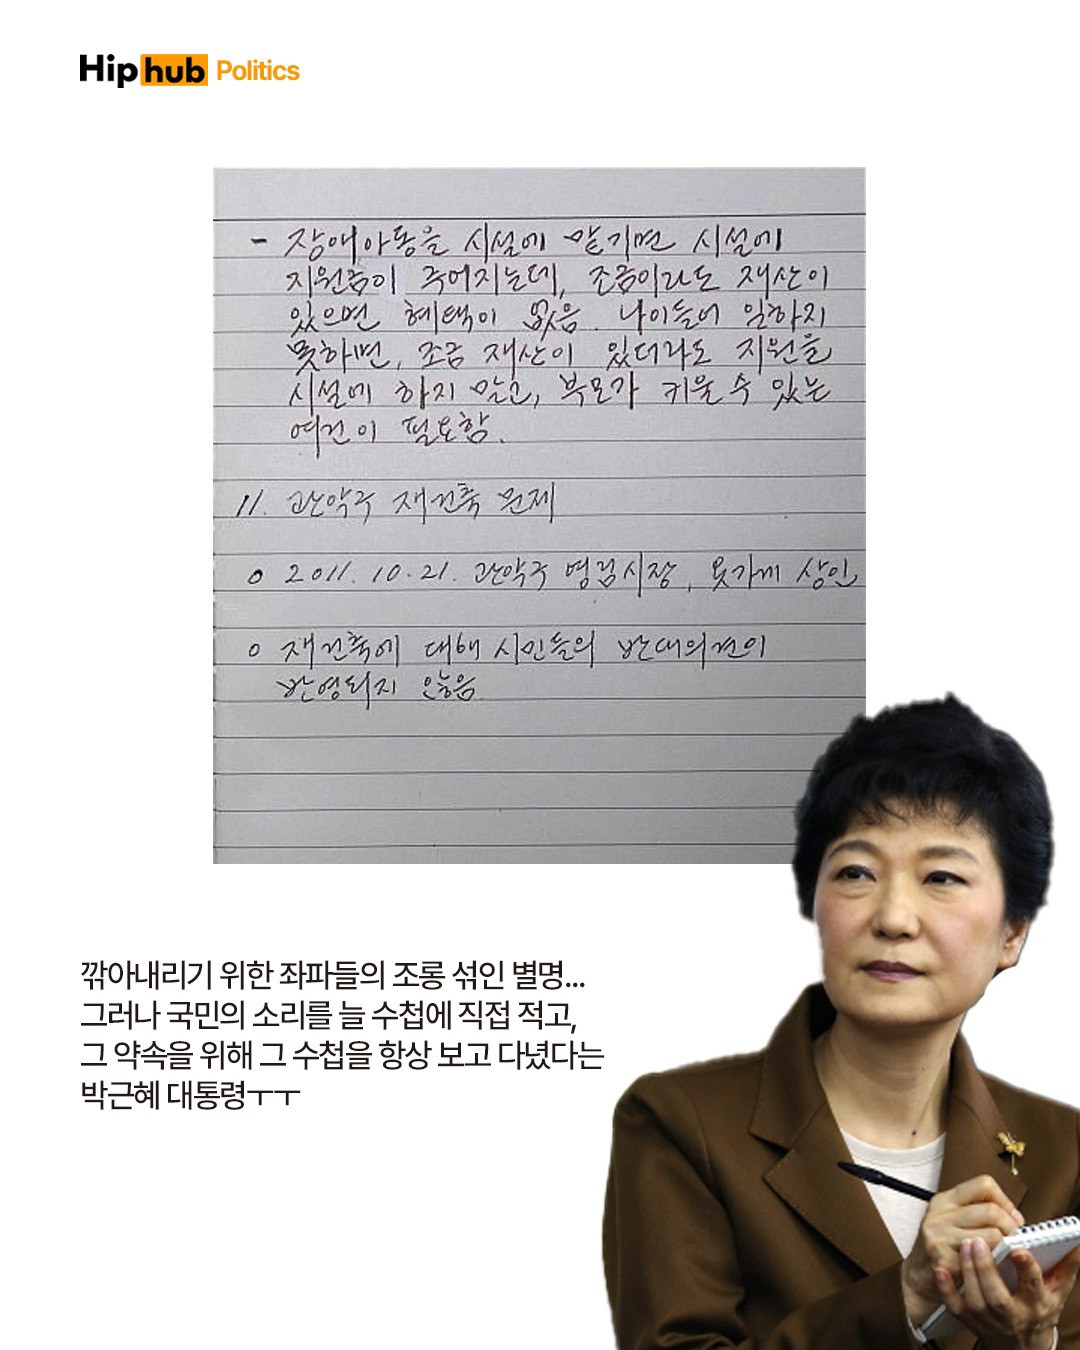 Hiphub Politics
- 장애아동을 시설에 맡기면 시설에
지원금이 주어지는데, 조금이라도 재산이
있으면 혜택이 없음. 나이들어 일하지
못하면, 조금 재산이 있더라도 지원을
시설에 하지 말고, 부모가 키울 수 있는
여건이 필요함.
11. 관악구 재건축 문제
o 2011. 10. 21. 관악구 영림시장, 옷가게 상인
o 재건축에 대해 시민들의 반대의견이
반영되지 않음.
깎아내리기 위한 좌파들의 조롱 섞인 별명...
그러나 국민의 소리를 늘 수첩에 직접 적고,
그 약속을 위해 그 수첩을 항상 보고 다녔다는
박근혜 대통령ㅜㅜ